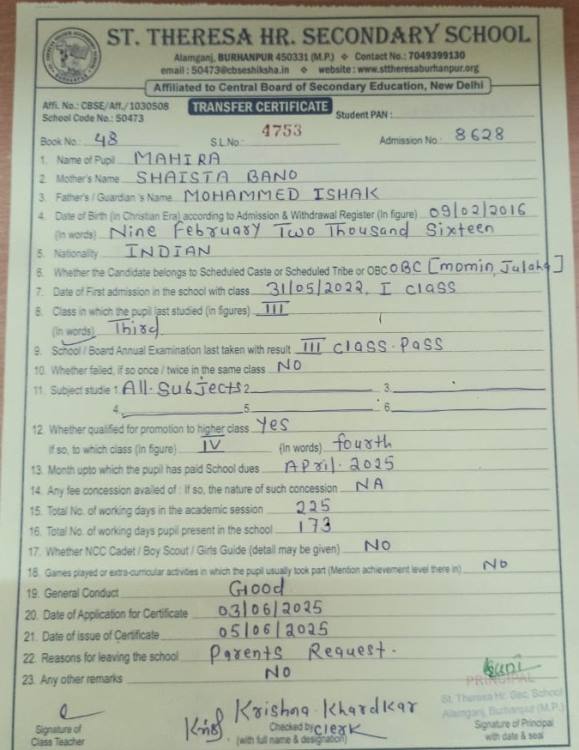 ST. THERESA HR. SECONDARY SCHOOL
Alamganj, BURHANPUR 450331 (M.P.) ❖ Contact No.: 7049399130
email : 50473@cbseshiksha.in ❖ website : www.sttheresaburhanpur.org
Affiliated to Central Board of Secondary Education, New Delhi
Affi. No.: CBSE/Aff./1030508
TRANSFER CERTIFICATE
Student PAN :
School Code No.: 50473
Book No.: 48 S.L.No.: 4753 Admission No.: 8628
1. Name of Pupil MAHIRA
2. Mother's Name SHAISTA BANO
3. Father's / Guardian's Name MOHAMMED ISHAK
4. Date of Birth (in Christian Era) according to Admission & Withdrawal Register (In figure) 09/02/2016
(In words) Nine February Two Thousand Sixteen
5. Nationality INDIAN
6. Whether the Candidate belongs to Scheduled Caste or Scheduled Tribe or OBC OBC [Momin, Julaha]
7. Date of First admission in the school with class 31/05/2022, I class
8. Class in which the pupil last studied (in figures) III
(In words) Third
9. School / Board Annual Examination last taken with result III class. Pass
10. Whether failed, if so once / twice in the same class NO
11. Subject studie 1. All. Subjects 2 3.
4. 5 6.
12. Whether qualified for promotion to higher class Yes
If so, to which class (in figure) IV (In words) fourth
13. Month upto which the pupil has paid School dues April. 2025
14. Any fee concession availed of : If so, the nature of such concession NA
15. Total No. of working days in the academic session 225
16. Total No. of working days pupil present in the school 173
17. Whether NCC Cadet / Boy Scout / Girls Guide (detail may be given) NO
18. Games played or extra-curricular activities in which the pupil usually took part (Mention achievement level there in) NO
19. General Conduct Good
20. Date of Application for Certificate 03/06/2025
21. Date of issue of Certificate 05/06/2025
22. Reasons for leaving the school Parents Request.
23. Any other remarks NO
PRINCIPAL
St. Theresa Hr. Sec. School
Alamganj, Burhanpur (M.P.)
Krishna Khardkar
Signature of
Class Teacher
Checked by clerk
(with full name & designation)
Signature of Principal
with date & seal